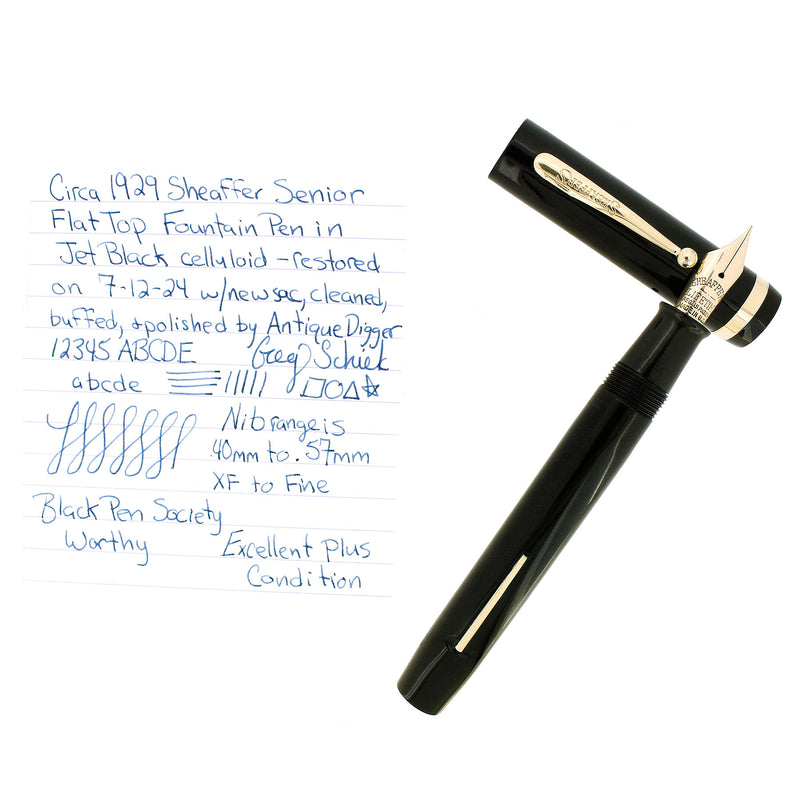 Circa 1929 Sheaffer Senior
Flat Top Fountain Pen in
Jet Black celluloid - restored
on 7-12-24 w/new sac, cleaned,
buffed, + polished by Antique Digger
12345 ABCDE Greg Schiek
abcde
Nib range is
.40mm to .57mm
XF to Fine
Black Pen Society
Worthy
Excellent Plus
Condition
SHEAFFER'S
SHEAFFER'S
LIFETIME